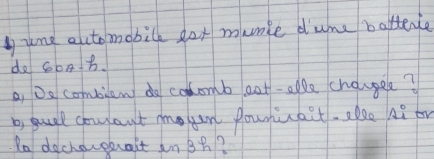 1) une automobile est munie d'une batterie
de 60A-h.
a, De combien de colomb est-elle chargée ?
b, quel courant moyen founirait-elle si on
la dechargerait en 3h?